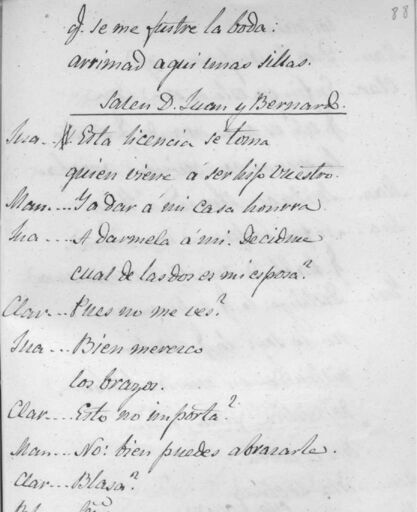 88
q. se me fustre la boda:
arrimad aqui unas sillas.
Salen D. Juan y Bernardo.
Jua... Esta licencia se toma
quien viene á ser hijo vuestro.
Man... Y a dar á mi casa honrra
Jua... A darmela á mi. Decidme
cual de las dos es mi esposa?
Clar... Pues no me ves?
Jua... Bien merezco
los brazos.
Clar... Esto no importa?
Man... No: bien puedes abrazarle.
Clar... Blasa?